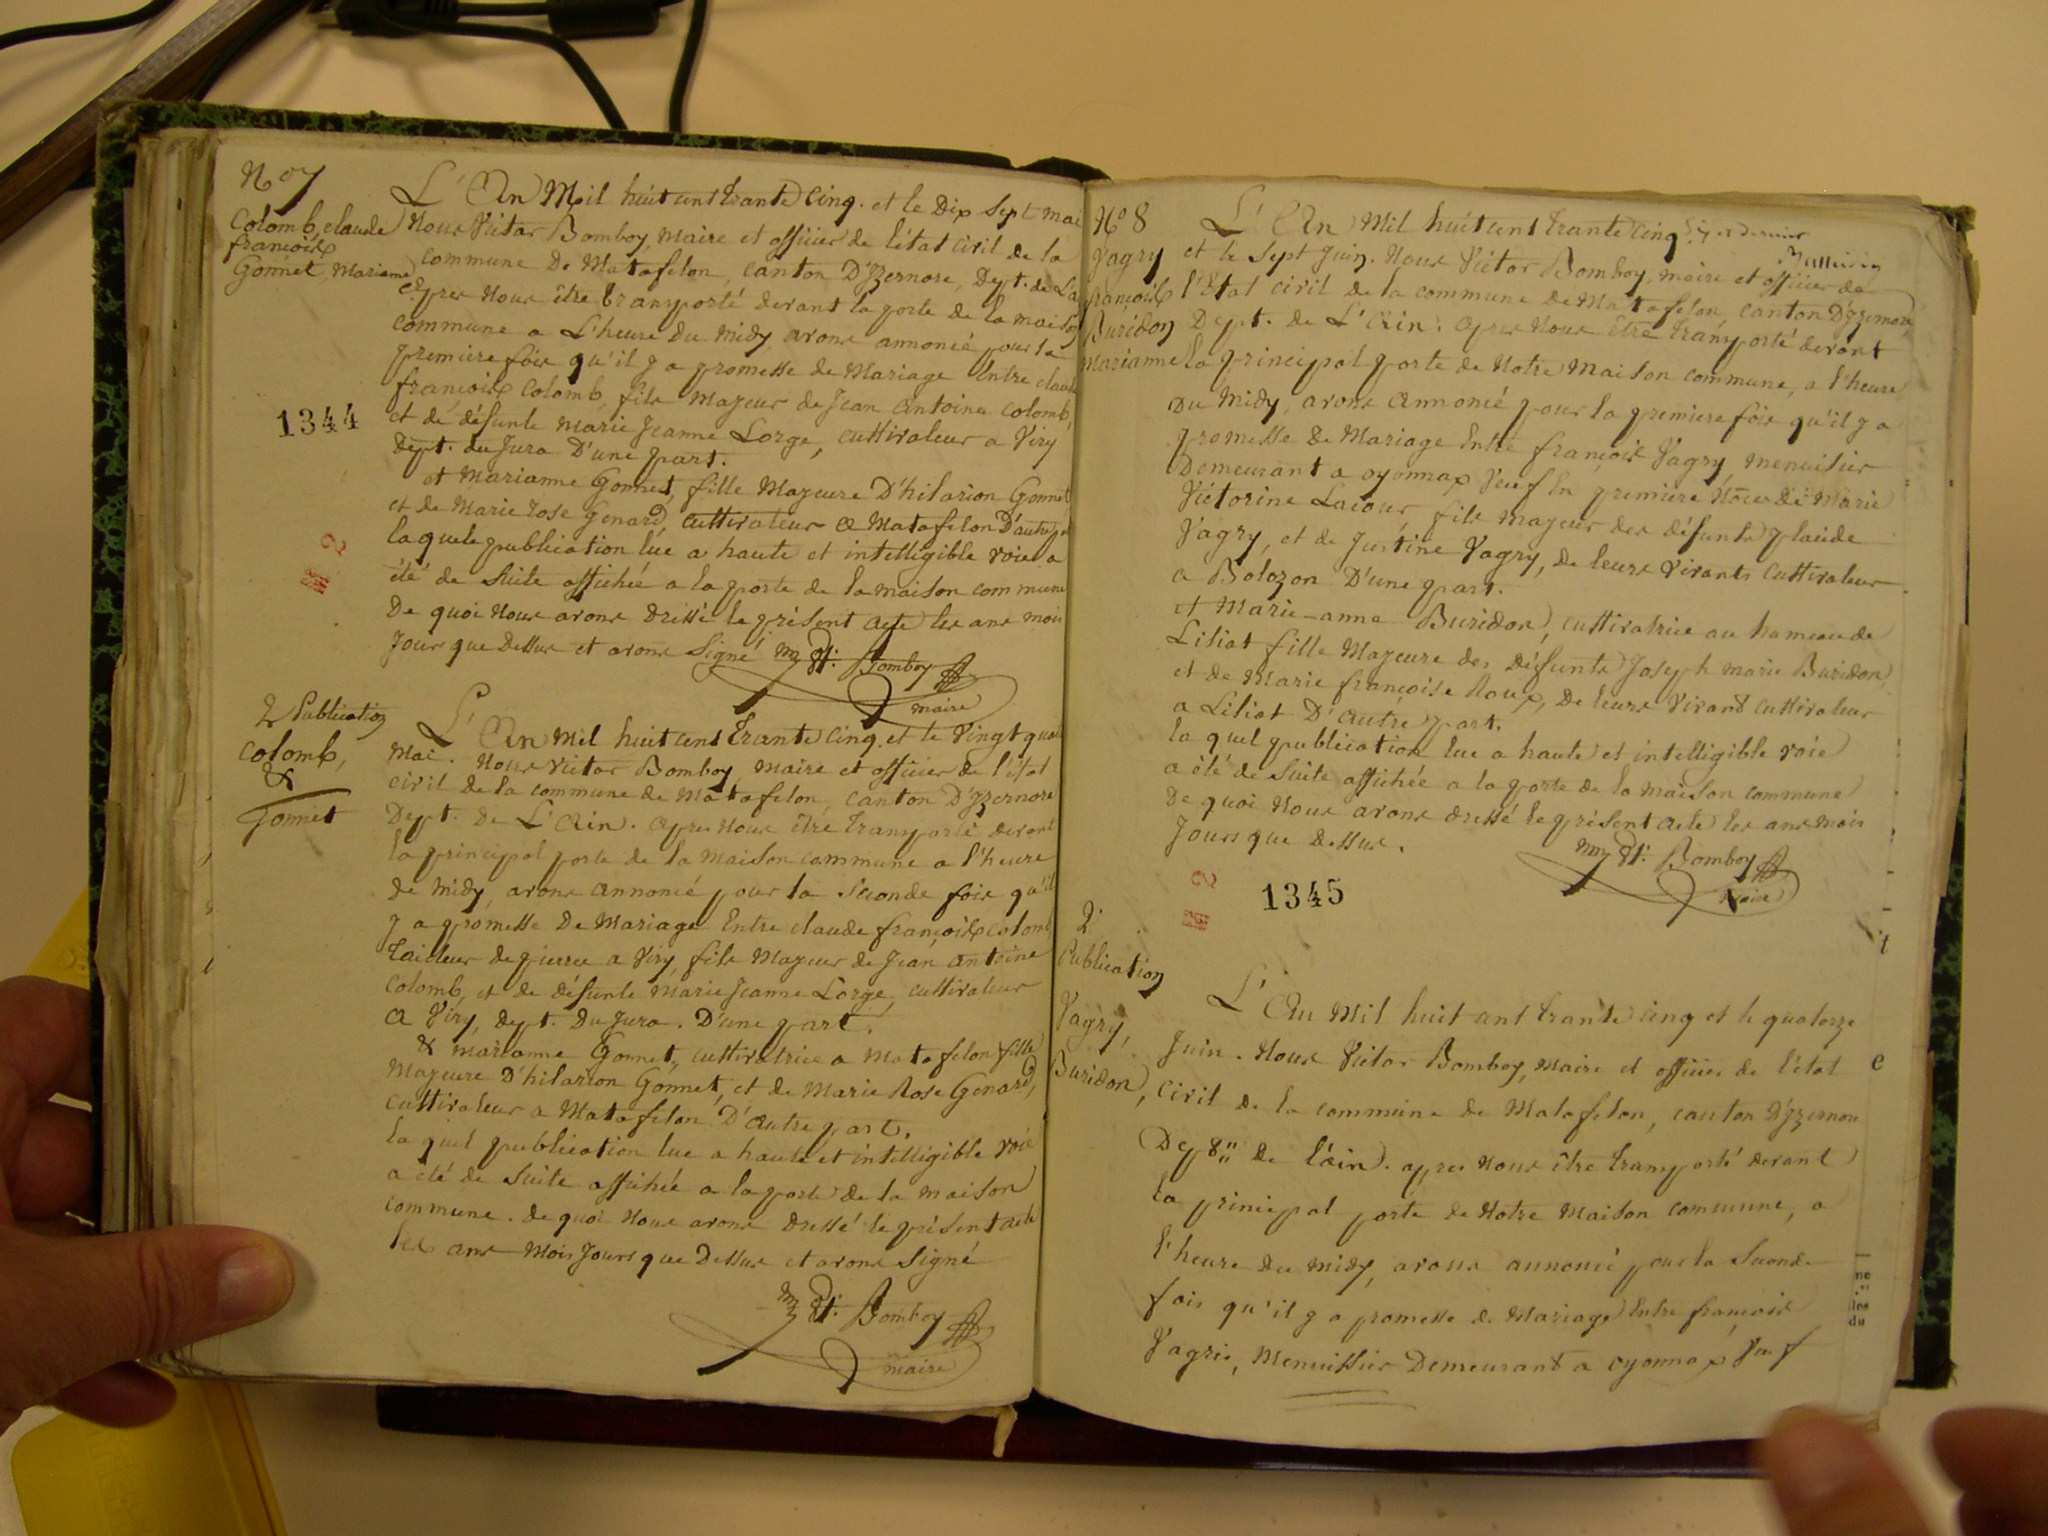 N° 7
Colomb, claude
françois
Gonnet, Marianne
L'An Mil huit cent trante cinq. et le Dix Sept mai
Nous Victor Bomboy, maire et officier de l'état civil de la
commune De Matafelon, canton D'yzernore, Dept. de La
apres Nous être transporté devant la porte de la maison
commune a L'heure Du midy avons annoncé pour la
premiere fois qu'il y a promesse de Mariage Entre claude
françois Colomb, fils Majeur de Jean Antoine Colomb,
et de défunte Marie Jeanne Lorge, cultivateur a Viry
dept. du Jura D'une part.
et Marianne Gonnet, fille Majeure D'hilarion Gonnet
et de Marie rose Genard, cultivateur a Matafelon D'autre pt
laquele publication lue a haute et intelligible voie a
été de Suite affichée a la porte de la maison commune
De quoi Nous avons dressé le présent acte les ans mois
Jour que Dessus et avons Signé
Bomboy
maire
1344
2 Publication
colomb,
&
Gonnet
L'An Mil huit cent trante cinq. et le Vingt quat
Mai. Nous Victor Bomboy, maire et officier de l'état
civil de la commune de Matafelon, canton D'yzernore
Dept. De L'Ain. apres Nous être transporté devant
la principal porte de la maison commune a l'heure
de Midy, avons annoncé pour la seconde fois qu'il
y a promesse De Mariage Entre claude françois colomb
tailleur de pierre a Viry, fils Majeur de Jean antoine
colomb, et de défunte Marie Jeanne Lorge, cultivateur
a Viry, dept. Du Jura. D'une part.
& marianne Gonnet, cultivatrice a Matafelon fille
Majeure D'hilarion Gonnet, et de Marie Rose Genard,
cultivateur a Matafelon D'Autre part.
la quel publication lue a haute et intelligible voie
a été de Suite affichée a la porte de la maison
commune. de quoi Nous avons dressé le présent acte
les ans Mois Jours que Dessus et avons Signé
Bomboy
maire
N° 8
Vagry
françois
Buridon
Marianne
L'An Mil huit cent trante cinq
et le Sept Juin. Nous Victor Bomboy, maire et officier de
l'état civil de la commune de Matafelon, canton D'yzernore,
Dept. de L'Ain. apres Nous être transporté devant
la principal porte de Notre Maison commune, a l'heure
Du Midy, avons annoncé pour la premiere fois qu'il y a
promesse de Mariage Entre françois Vagry, menuisier
Demeurant a oyonnax Veuf En premiere Noces de Marie
Victorine Lacour fils majeur des défunts plaide
Vagry, et de Justine Vagry, de leurs Vivants cultivateur
a Bolozon D'une part.
et Marie-anne Buridon, cultivatrice au hameau de
Liliat fille Majeure des défunts Joseph marie Buridon,
et de Marie françoise Roux, De leurs Vivant cultivateur
a Liliat D'autre part.
la quel publication lue a haute et intelligible voie
a été de Suite affichée a la porte de la maison commune
De quoi Nous avons dressé le présent acte les ans mois
Jours que dessus.
Bomboy
Maire
1345
2e
Publication
Vagry,
Buridon,
L'An Mil huit cent trante cinq et le quatorze
Juin. Nous Victor Bomboy, Maire et officier de l'état
civil de la commune de Matafelon, canton D'yzernore
Dept de l'ain. apres Nous être transporté devant
la principal porte de Notre Maison commune, a
l'heure du midy, avons annoncé pour la Seconde
fois qu'il y a promesse de Mariage Entre françois
Vagris, Menuissier Demeurant a oyonnax Veuf